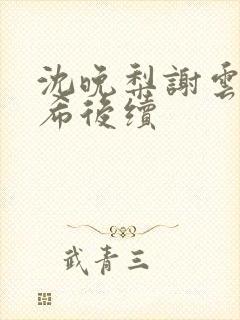 沈晚梨謝雲
希後續
武青三